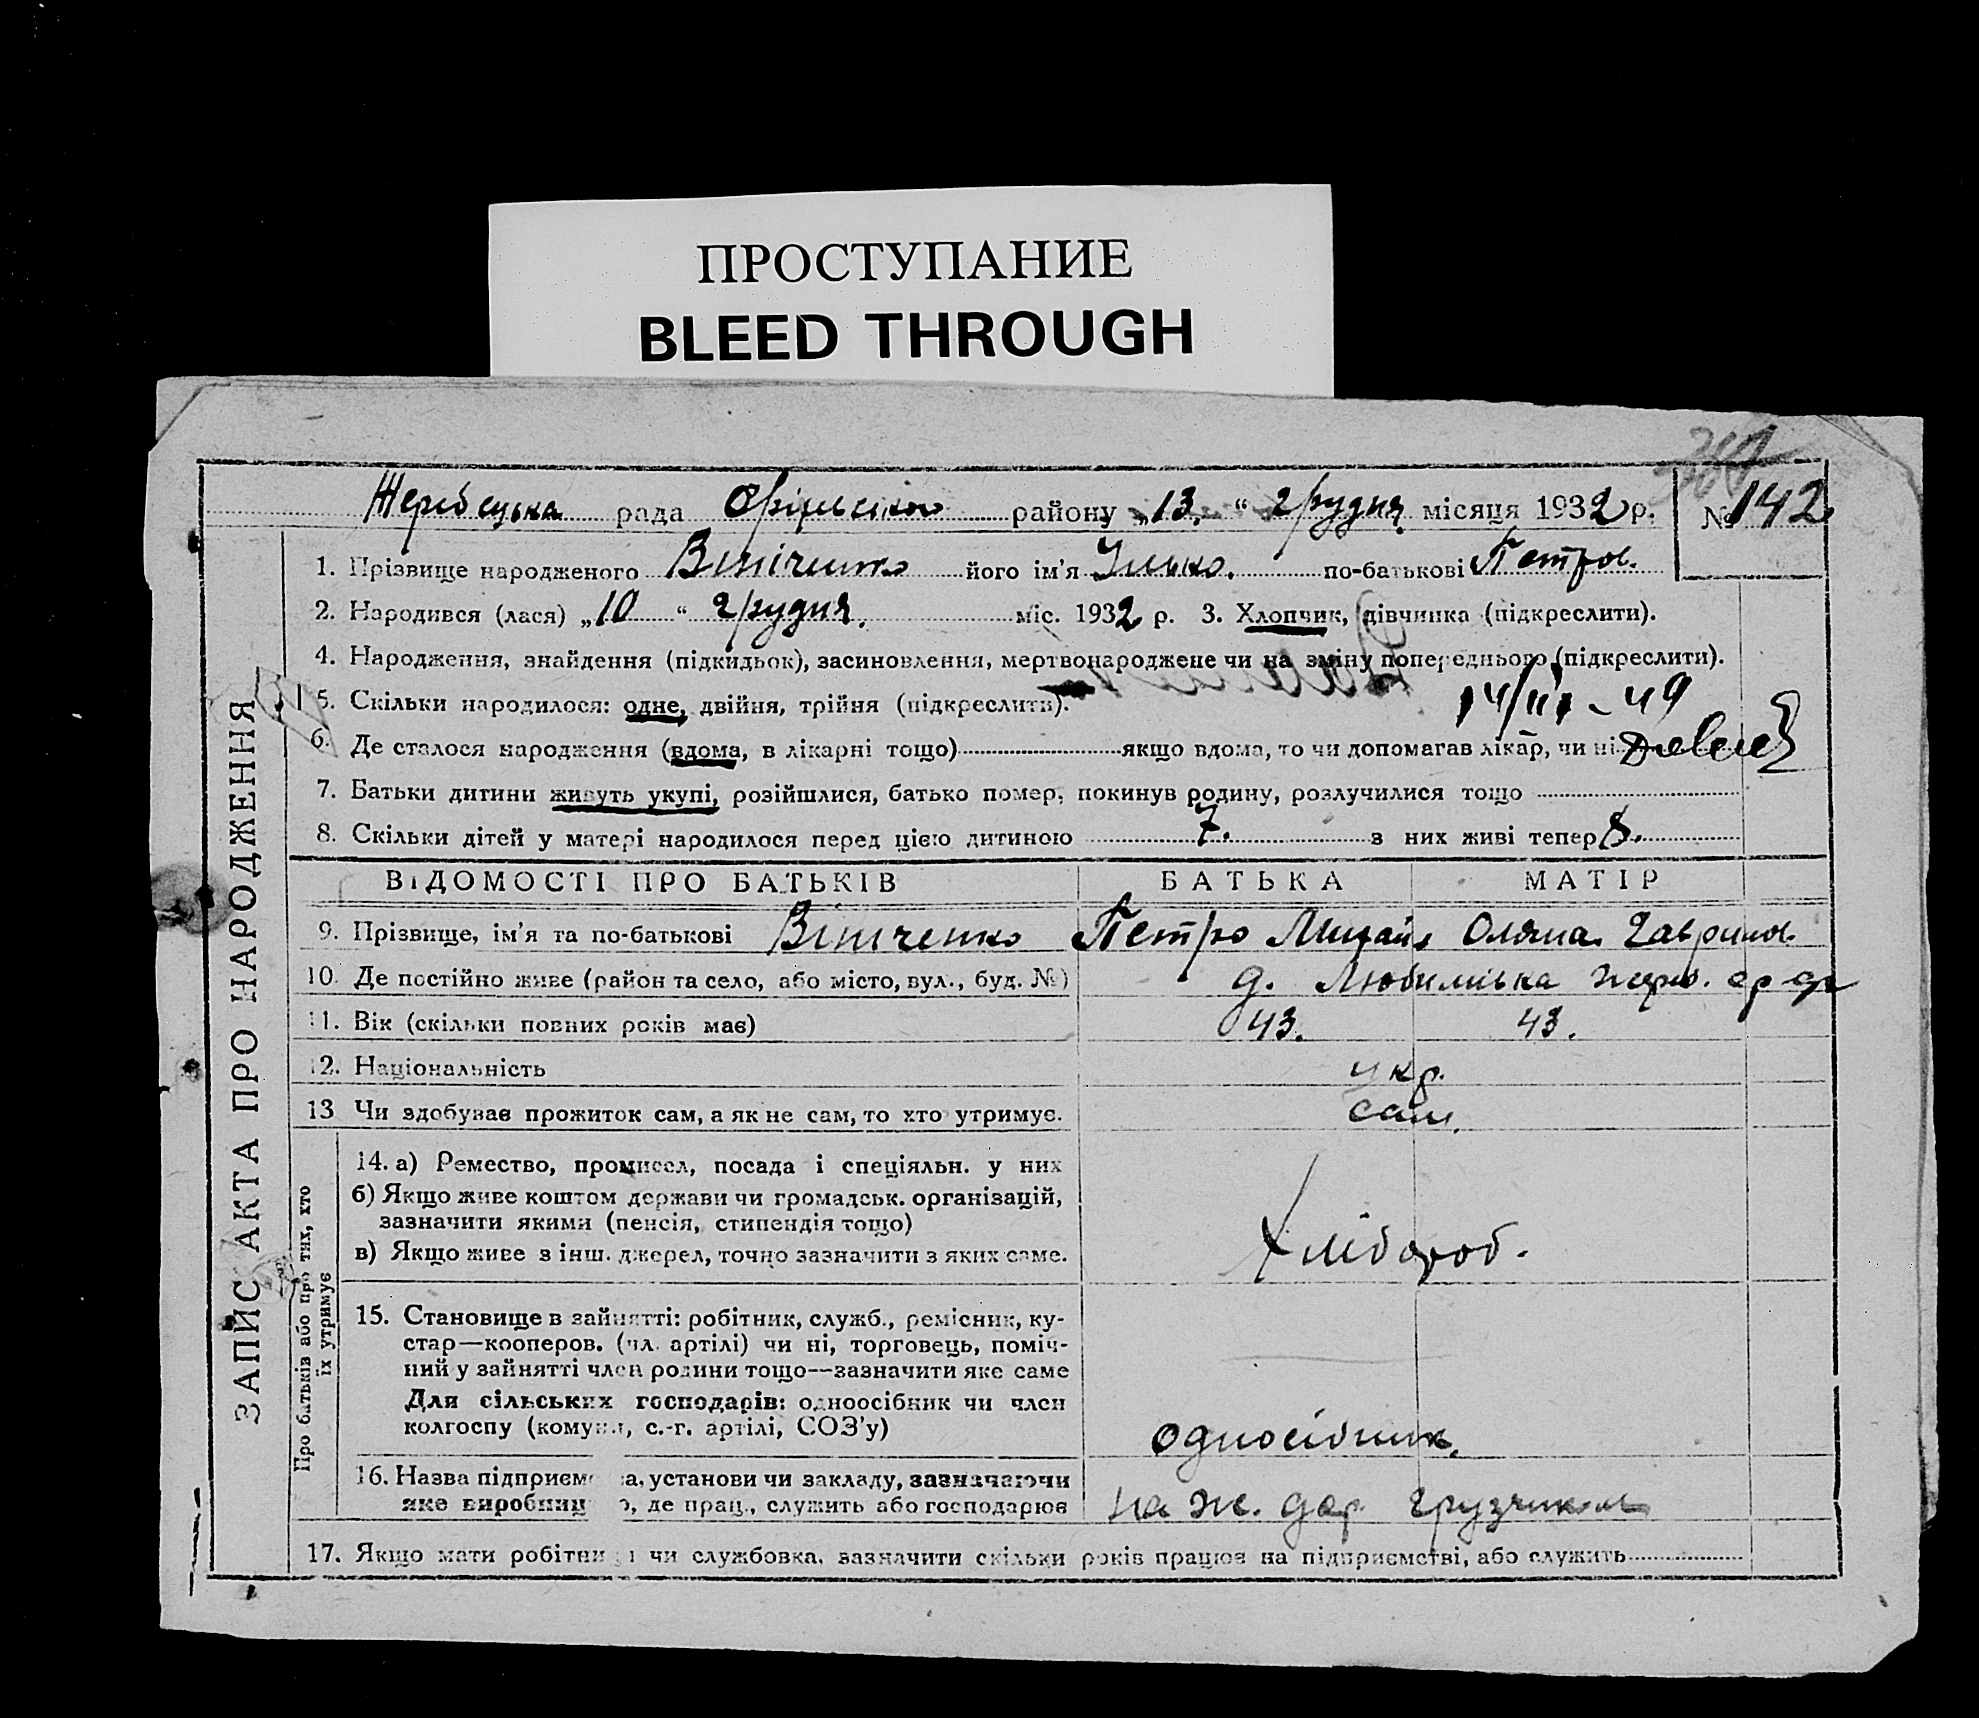 ПРОСТУПАНИЕ
BLEED THROUGH
Жеребецька рада Оріхівського району „13.“ грудня місяця 1932 р. № 142
ЗАПИС АКТА ПРО НАРОДЖЕННЯ
1. Прізвище народженого Вініченко його ім'я Ілько. по-батькові Петров.
2. Народився (лася) „10“ грудня. міс. 1932 р. 3. Хлопчик, дівчинка (підкреслити).
4. Народження, знайдення (підкидьок), засиновлення, мертвонароджене чи на зміну попереднього (підкреслити).
5. Скільки народилося: одне, двійня, трійня (підкреслити).
14/III - 49
6. Де сталося народження (вдома, в лікарні тощо) якщо вдома, то чи допомагав лікар, чи ні
7. Батьки дитини живуть укупі, розійшлися, батько помер, покинув родину, розлучилися тощо
8. Скільки дітей у матері народилося перед цією дитиною 7. з них живі тепер
ВІДОМОСТІ ПРО БАТЬКІВ БАТЬКА МАТІР
9. Прізвище, ім'я та по-батькові Вініченко Петро Михайл Оляна Гаврилов.
10. Де постійно живе (район та село, або місто, вул., буд. №) д. Любимівка
11. Вік (скільки повних років має) 43. 43.
12. Національність укр.
13 Чи здобував прожиток сам, а як не сам, то хто утримує. сам.
Про батьків або про тих, хто
їх утримує
14. а) Ремество, промисел, посада і спеціяльн. у них
б) Якщо живе коштом держави чи громадськ. організацій,
зазначити якими (пенсія, стипендія тощо)
в) Якщо живе з інш. джерел, точно зазначити з яких саме.
Хлібороб.
15. Становище в зайнятті: робітник, служб., ремісник, ку-
стар—кооперов. (чл. артілі) чи ні, торговець, поміч-
ний у зайнятті член родини тощо—зазначити яке саме
Для сільських господарів: одноосібник чи член
колгоспу (комуни, с.-г. артілі, СОЗ'у)
односібник.
16. Назва підприємства, установи чи закладу, зазначаючи
яке виробництво, де прац., служить або господарює
на ж. дор. грузчиком
17. Якщо мати робітниця чи службовка, зазначити скільки років працює на підприємстві, або служить